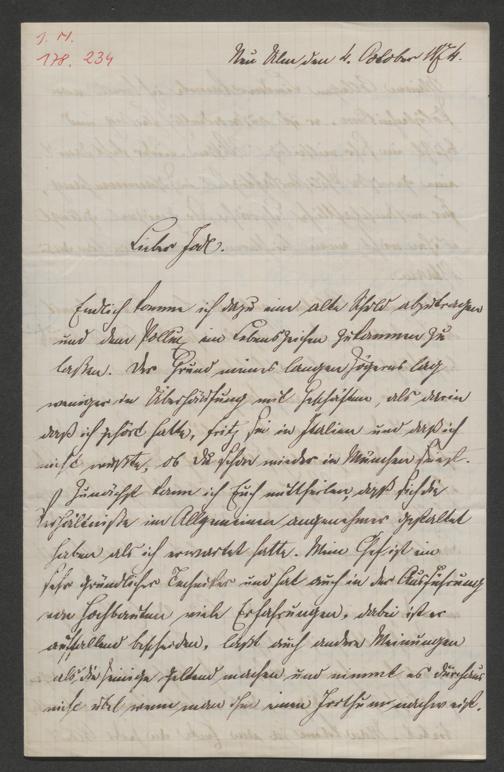 J. N.
178.234
Neu Ulm den 4. October 1874.
Lieber Jodl.
Endlich komme ich dazu eine alte Schuld abzutragen
und dem Kollegen ein Lebenszeichen zukommen zu
laßen. Der Grund meines langen Zögerns lag
weniger in Überhäufung mit Geschäften, als darin
daß ich gehört hatte, Fritz sei in Italien und daß ich
nicht wußte, ob Du schon wieder in München seist.
Zunächst kann ich Euch mittheilen, daß sich die
Verhältniße im Allgemeinen angenehmer gestaltet
haben als ich erwartet hatte. Mein Chef ist ein
sehr gründlicher Techniker und hat auch in der Ausführung
von Hochbauten viele Erfahrungen, dabei ist er
auffallend bescheiden, läßt auch andere Meinungen
als die seinige geltend machen und nimmt es durchaus
nicht übel wenn man ihm einen Irrthum nachweist.